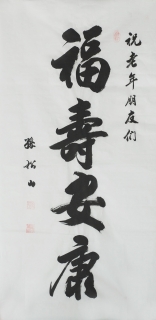 祝老年朋友们
福寿安康
孙松山